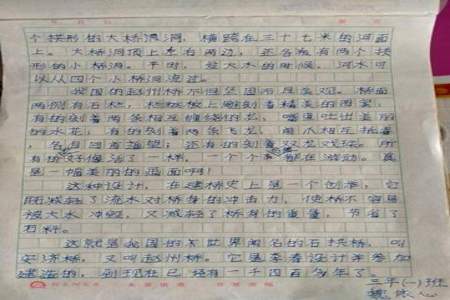 个拱形的大桥洞洞，横跨在三十七米的河面
上。大桥洞顶上左右两边，还各有两个拱
形的小桥洞。平时，发大水的时候，河水可
以从四个小桥洞流过。
我国的赵州桥不但坚固而且美观。桥面
两侧有石栏，栏板上雕刻着精美的图案：
有的刻着两条相互缠绕的龙，嘴里吐出美丽
的水花；有的刻着两条飞龙，前爪相互抵着
，各自回首遥望；还有的刻着双龙戏珠。所
有的龙好像活了一样，一个个都在游动。真
是一幅美丽的画面啊！
这种设计，在建桥史上是一个创举，它
既减轻了流水对桥身的冲击力，使桥不容易
被大水冲毁，又减轻了桥身的重量，节省了
材料。
这就是我国的世界闻名的石拱桥，叫
安济桥，又叫赵州桥。它是李春设计并参加
建造的，到现在已经有一千四百多年了。
三年(一)班